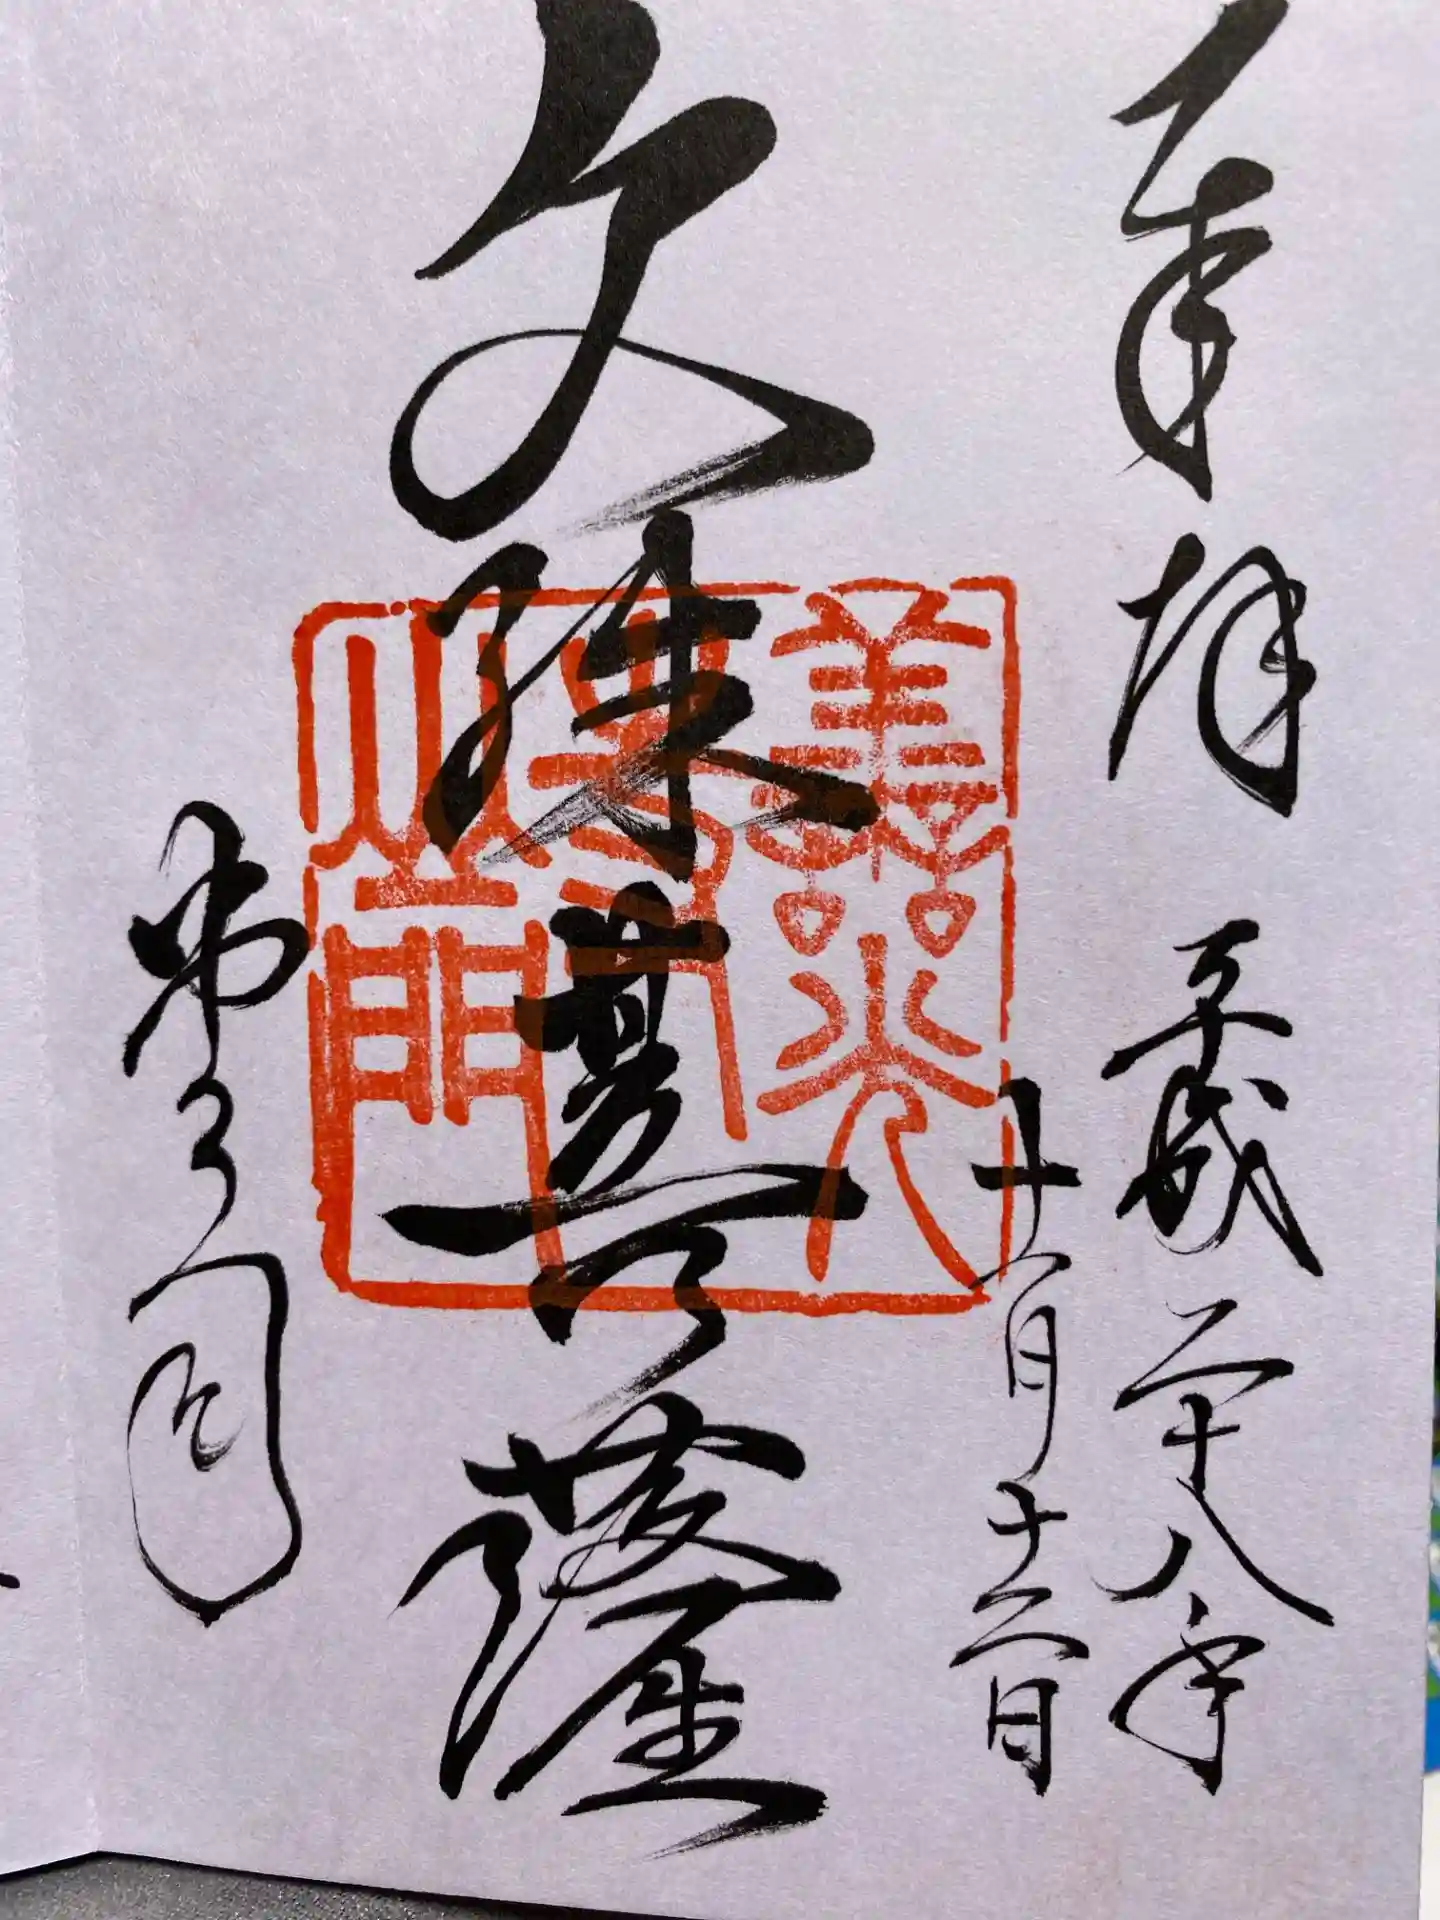 奉拝 平成二十八年
十一月十二日
文殊菩薩
善光寺山門